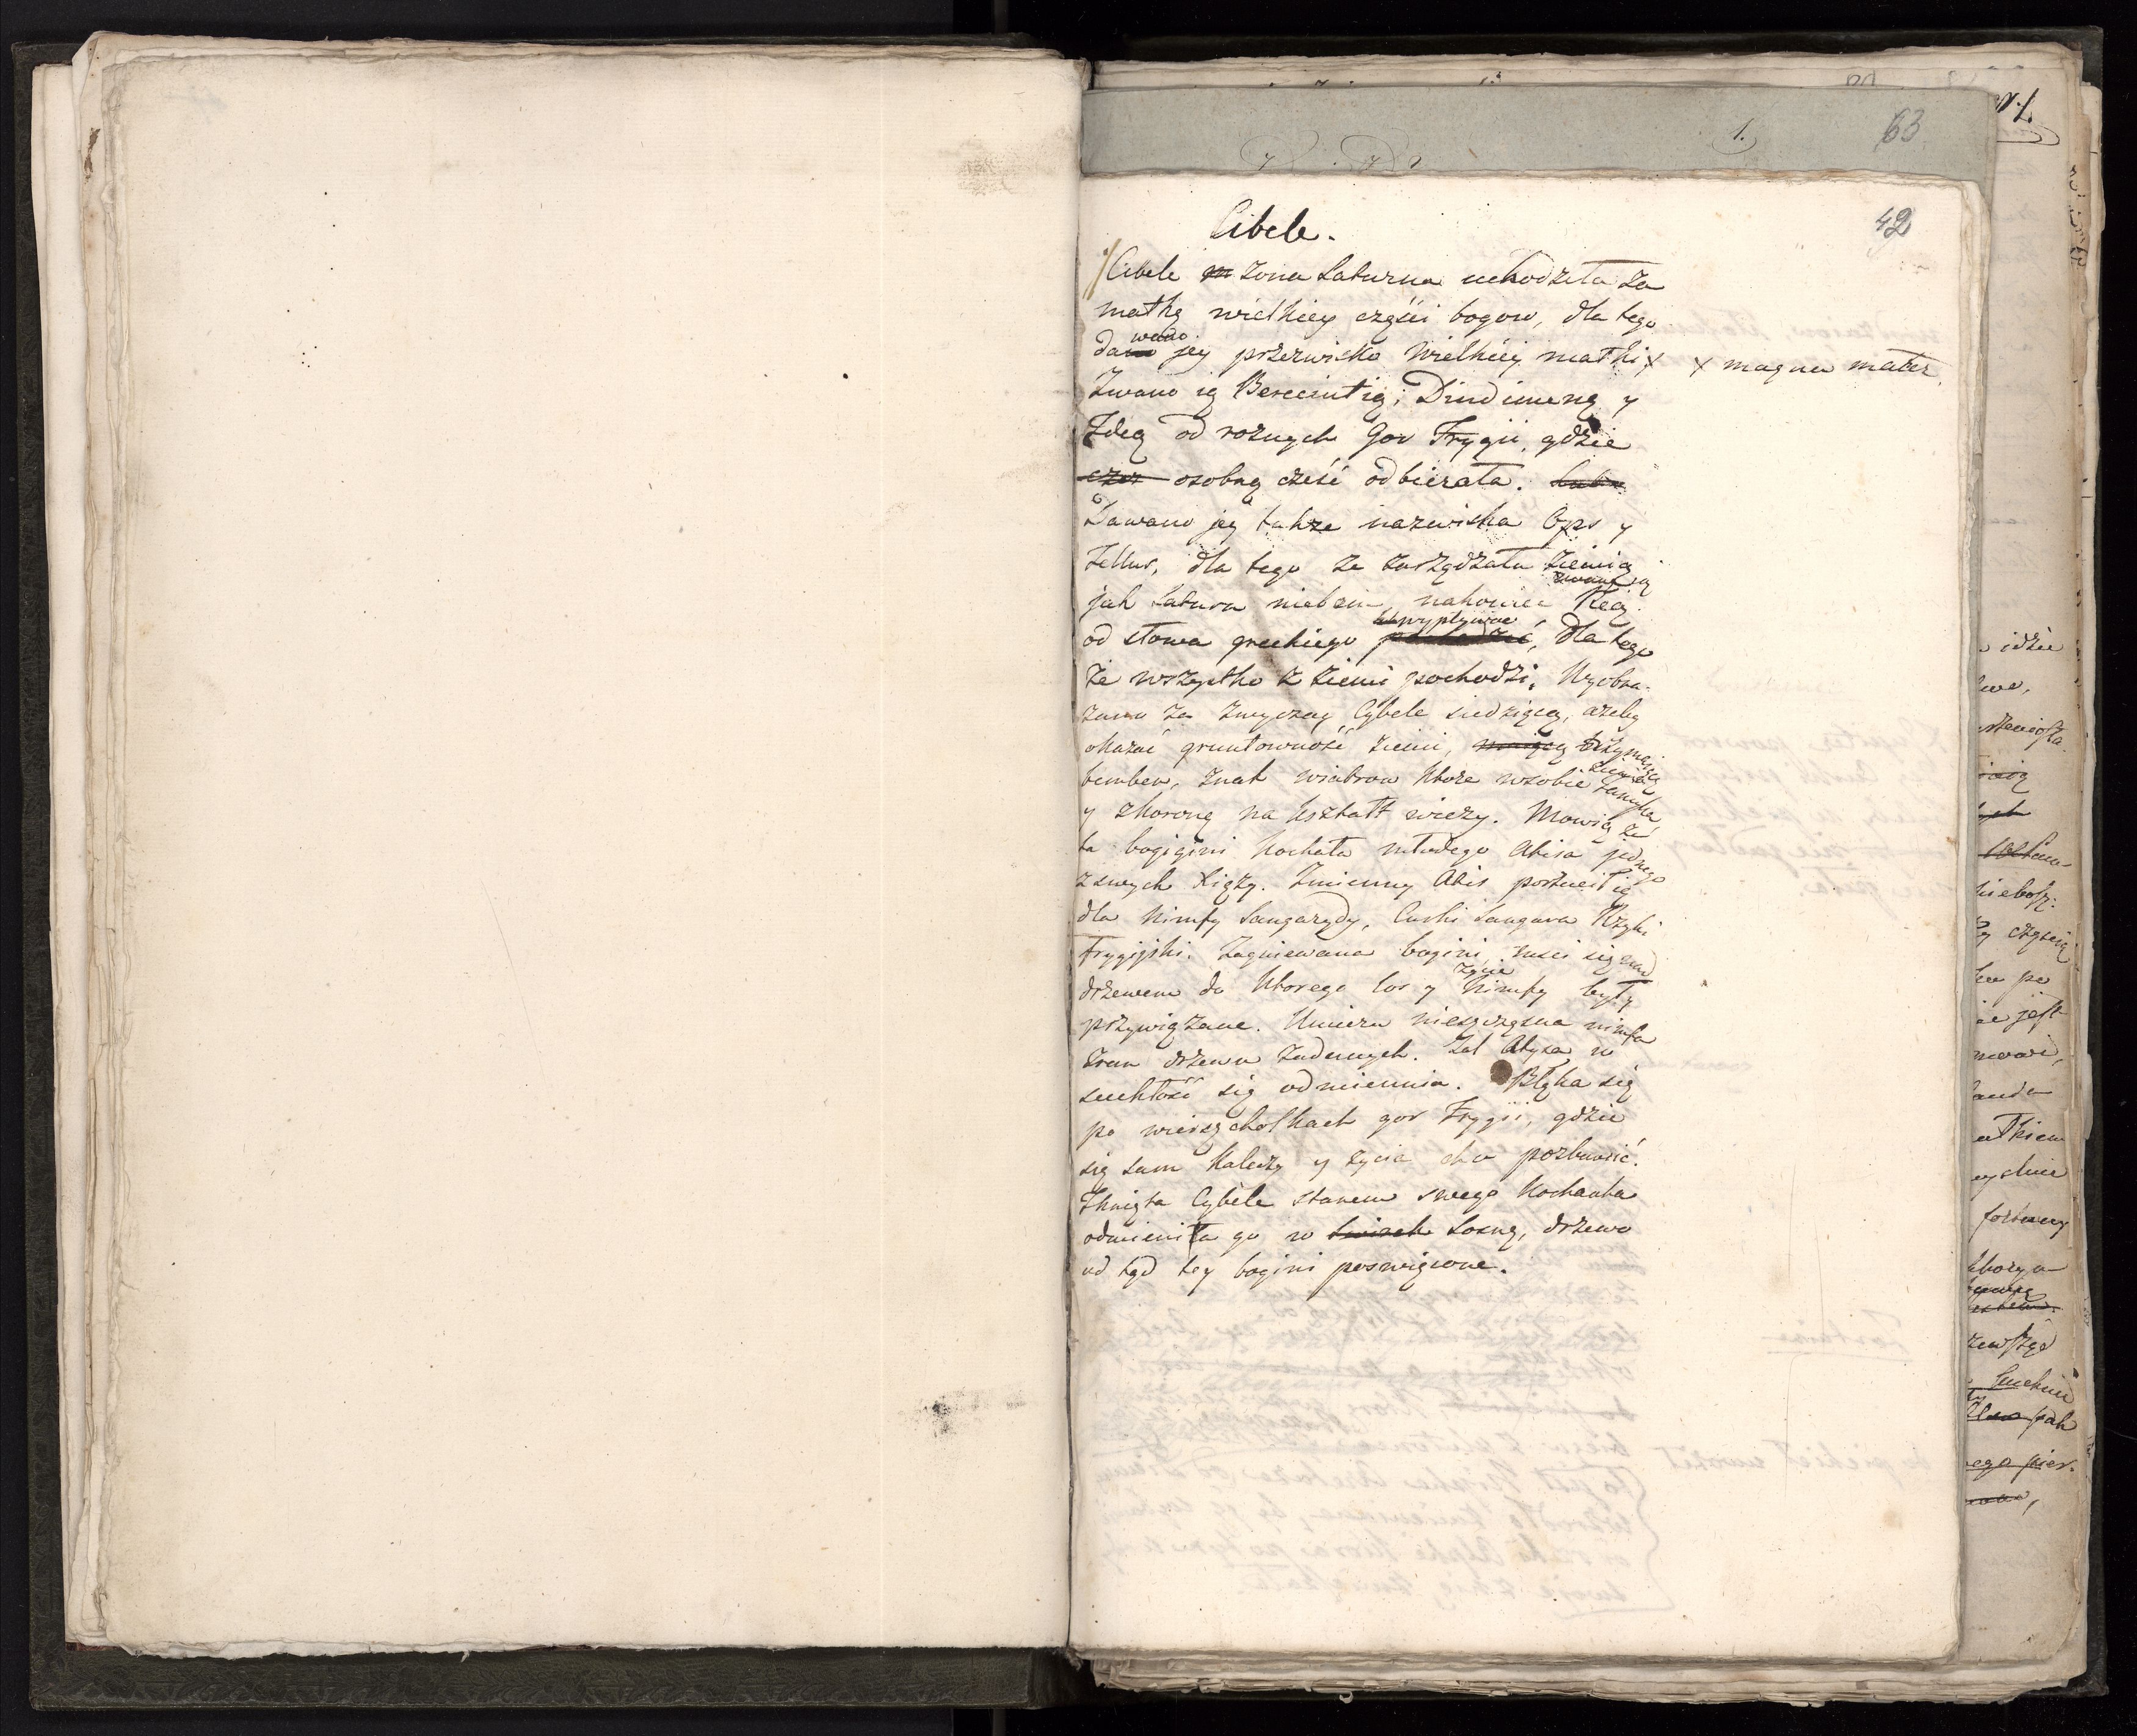 1.
63
42
Cibele.
Cibele zona Saturna uchodziła za
matkę wielkiey części bogow, dla tego
dawano jey przezwisko Wielkiey matki x x magna mater
Zwano ią Berecintią, Dindimeną y
Ideą od rożnych gor Frygii, gdzie
osobną cześć odbierała.
Dawano jey także nazwiska Ops y
Tellus, dla tego ze zarządzała ziemią
jak Saturn niebem, nakoniec zwano ią Reą
od słowa greckiego wypływac, dla tego
że wszystko z ziemi pochodzi. Wyobra-
zano za zwyczay Cybele siedzącą, azeby
okazać gruntowność ziemi, trzymaiącą
bemben, znak wiatrow ktore w sobie ziemia zamyka
y z koroną na kształt wieży. Mowią że
ta bogigini kochała młodego Atisa jednego
z swych Xięży. Zmienny Atis porzucił ią
dla Nimfy Sangarydy, Curki Sangara Rzyki
Frygijski. Zagniewana bogini, msci się nad
drzewem do ktorego los y życie Nimfy były
przywiązane. Umiera nieszczęsna nimfa
z ran drzewu zadennych. Zal Atysa w
suchłość się odmiennia. Błąka się
po wierszchołkach gor Frygii, gdzie
się sam kaleczy y zycia chce pozbawić.
Tknięta Cybele stanem swego Kochanka
odmieniła go w Sosnę, drzewo
od tąd tey bogini poswięcone.